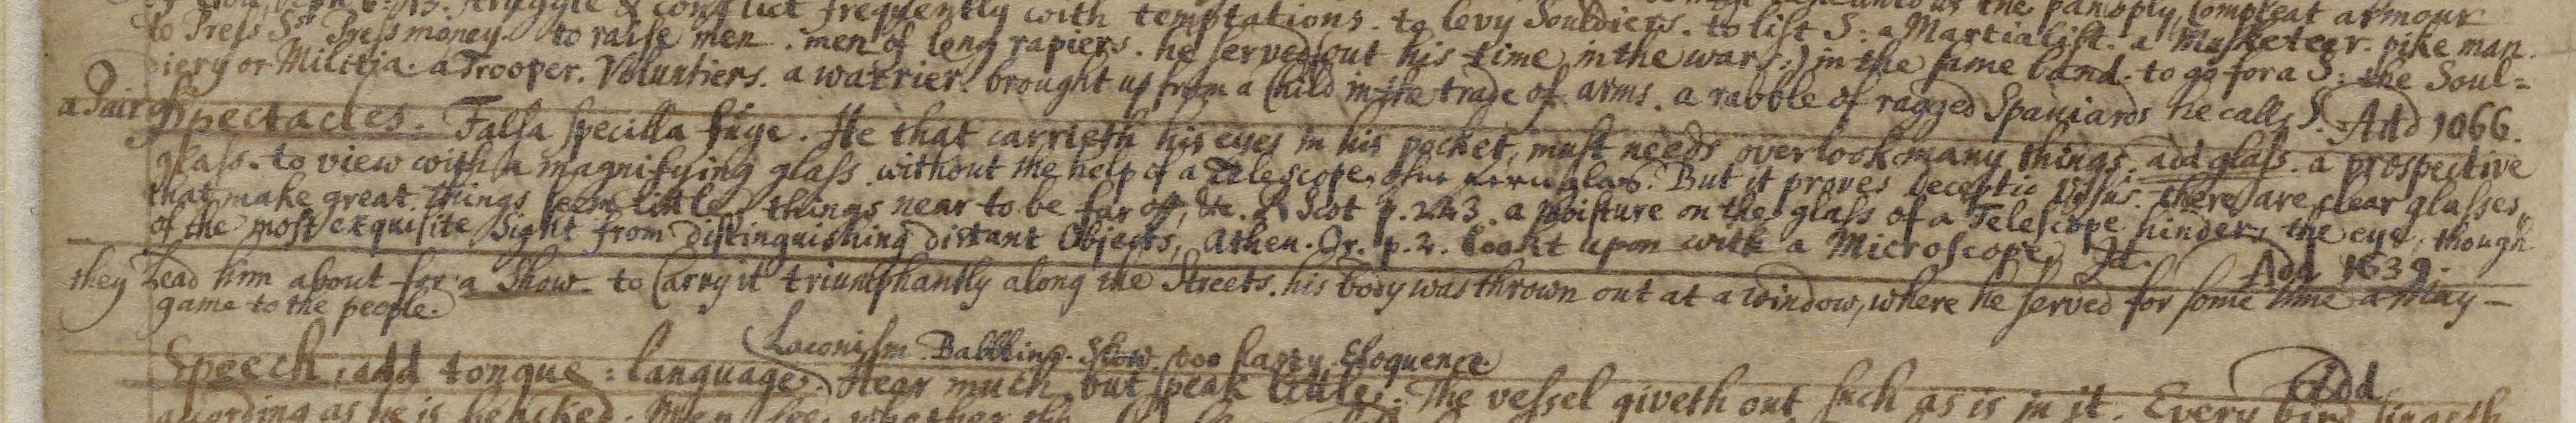 struggle & conflict frequently with temptations. to levy Souldiers. to list S: a Martialist. a Musketeer. pike man.
to Press Srs Press money. to raise men. men of long rapiers. he served out his time in the wars:) in the same band. to go for a S: the Soul=
iery or Militia. a Trooper. Voluntiers. a warrier. brought up from a Child in the trade of arms. a rabble of ragged Spaniards he calls S. Add 1066.
a Pair of Spectacles. Falsa specilla fuge. He that carrieth his eyes in his pocket, must needs overlook many things: add glass. a prospective
glass. to view with a magnifying glass. without the help of a Telescope. But it proves deceptio visus. there are clear glasses
that make great things seem little, things near to be far off, &c. R Scot p. 243. a moisture on the glass of a Telescope hinders the eye, though
of the most exquisite Sight from distinguishing distant Objects, Athen. Or. p. 2. lookt upon with a Microscope, Id. Add 1639.
they Lead him about for a Show. to Carry it triumphantly along the Streets. his body was thrown out at a window, where he served for some time a may-
game to the people.
Laconism. Babbling. Slow. too hasty. Eloquence
Speech, add tongue: language. Hear much, but speak little. The vessel giveth out such as is in it. Every bird singeth Add
according as he is